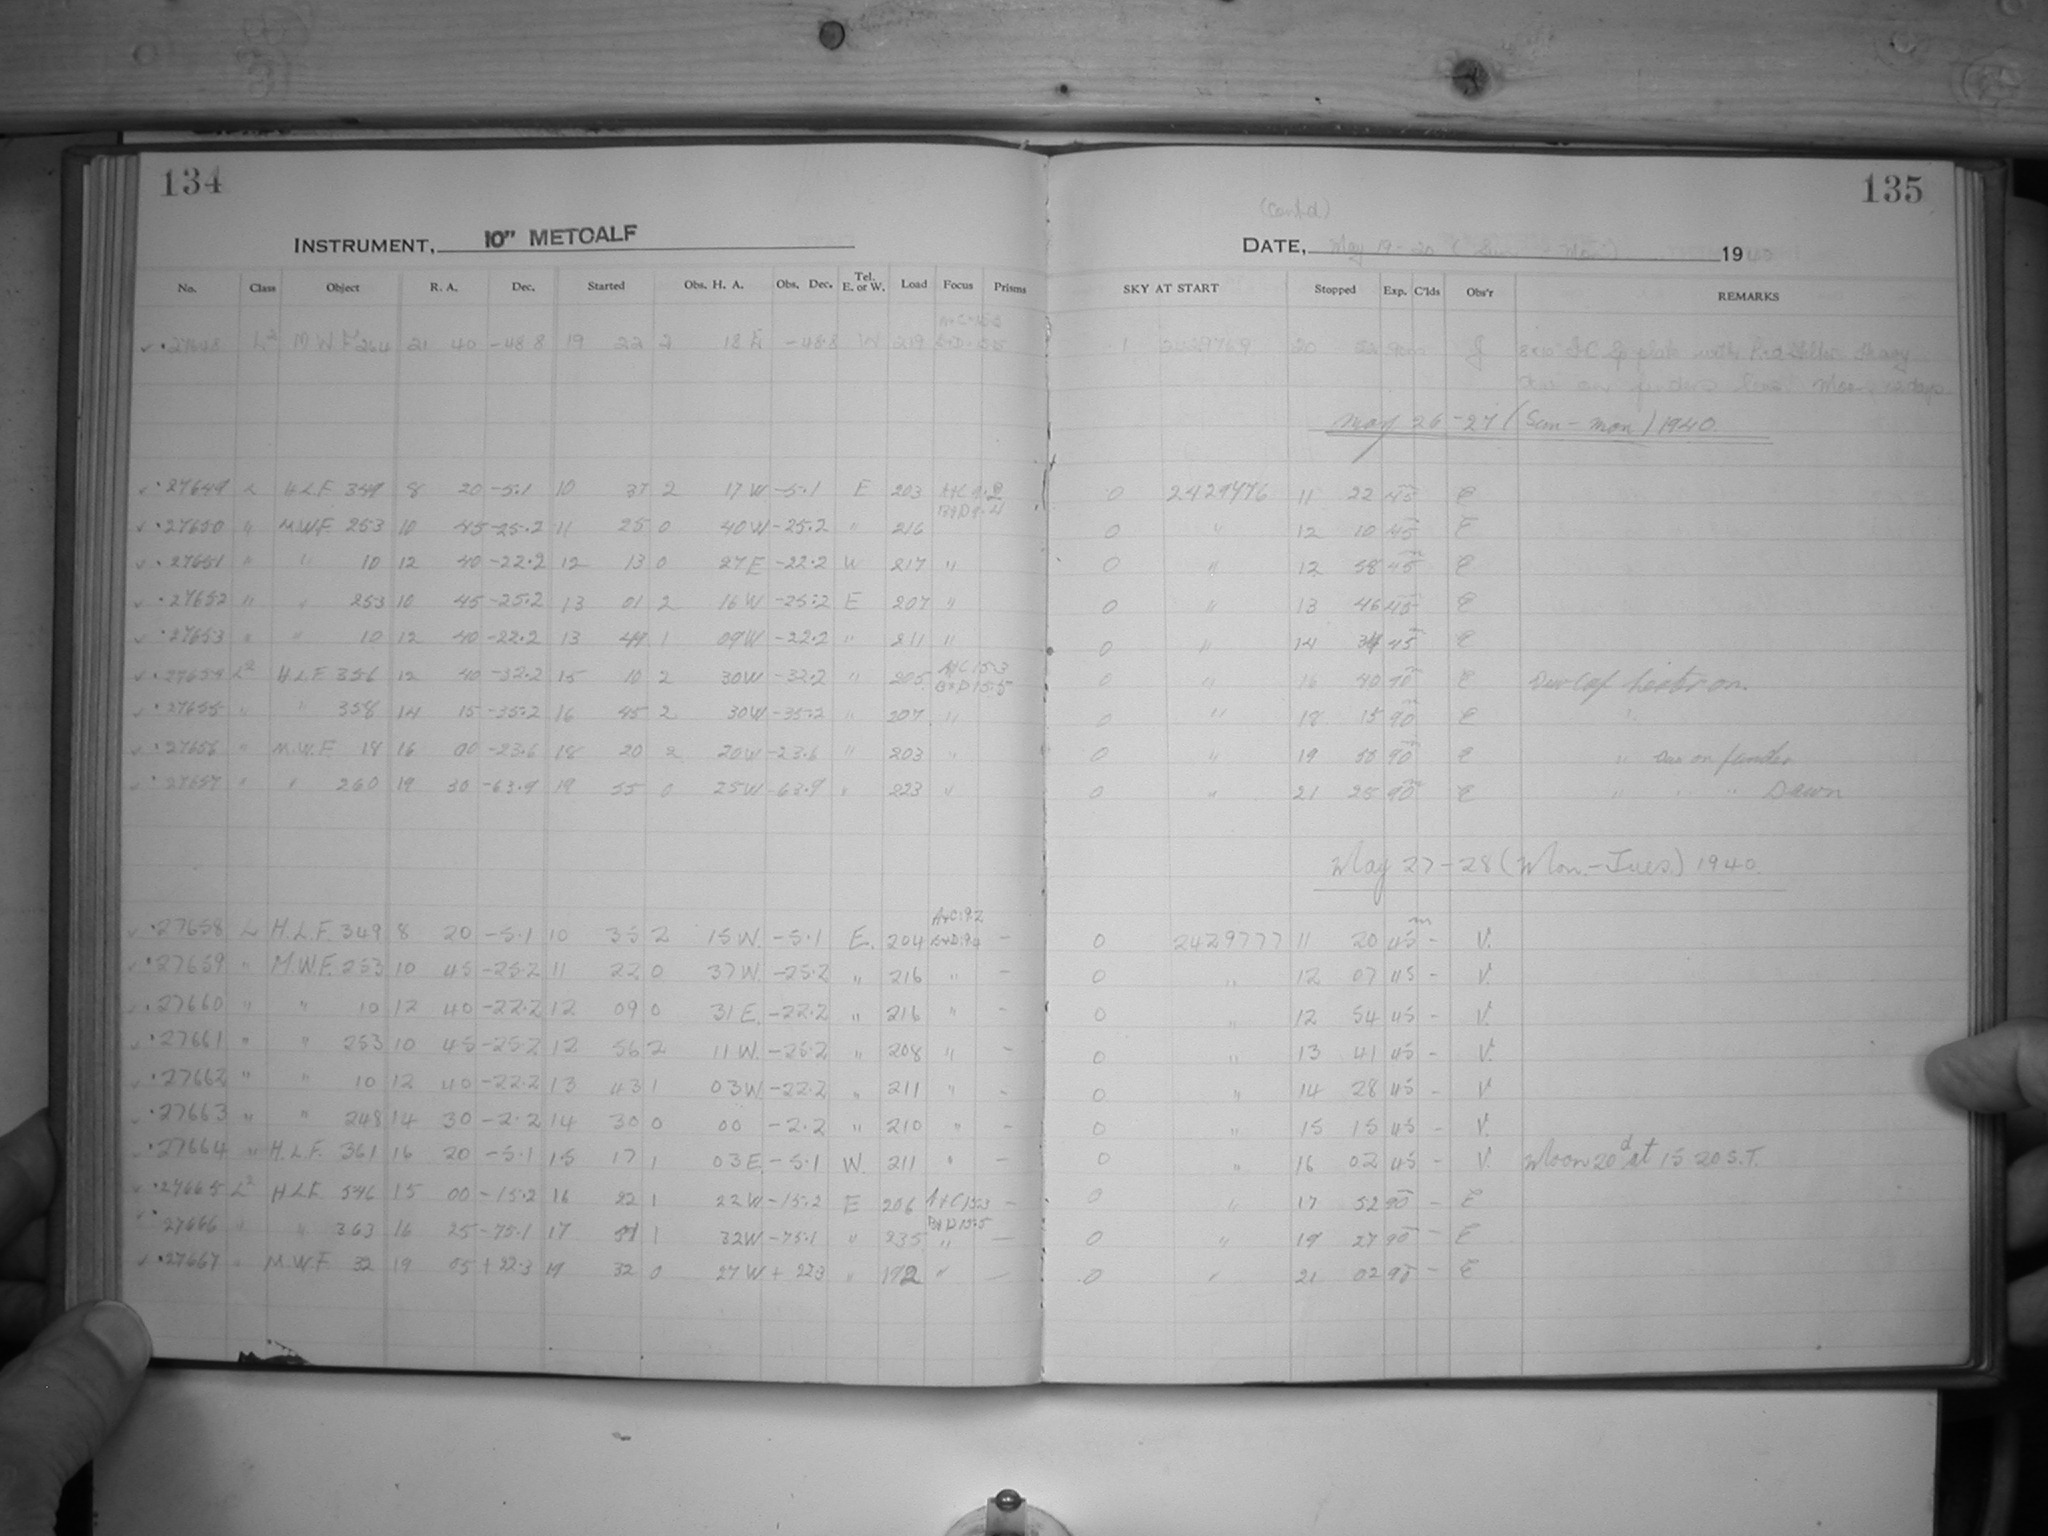 134
INSTRUMENT, 10" METCALF
No. Class Object R. A. Dec. Started Obs. H. A. Obs. Dec. Tel. E. or W. Load Focus Prisms
27648 L2 M W F 264 21 40 -48.8 19 22 2 18 E -48.8 W 219
27649 L H.L.F. 349 8 20 -5.1 10 37 2 17 W -5.1 E 203 A+C 9.2 B+D 9.4
27650 " M.W.F. 253 10 45 -25.2 11 25 0 40 W -25.2 " 216
27651 " " 10 12 40 -22.2 12 13 0 27 E -22.2 W 217 "
27652 " " 253 10 45 -25.2 13 01 2 16 W -25.2 E 207 "
27653 " " 10 12 40 -22.2 13 49 1 09 W -22.2 " 211 "
27654 L2 H.L.F. 356 12 40 -32.2 15 10 2 30 W -32.2 " 205 A+C 15.3 B+D 15.5
27655 " " 358 14 15 -35.2 16 45 2 30 W -35.2 " 207 "
27656 " M.W.F. 18 16 00 -23.6 18 20 2 20 W -23.6 " 203 "
27657 " " 260 19 30 -63.9 19 55 0 25 W -63.9 " 223 "
27658 L H.L.F. 349 8 20 -5.1 10 35 2 15 W. -5.1 E. 204 A+C 9.2 B+D 9.4 -
27659 " M.W.F. 253 10 45 -25.2 11 22 0 37 W. -25.2 " 216 " -
27660 " " 10 12 40 -22.2 12 09 0 31 E. -22.2 " 216 " -
27661 " " 253 10 45 -25.2 12 56 2 11 W. -25.2 " 208 " -
27662 " " 10 12 40 -22.2 13 43 1 03 W -22.2 " 211 " -
27663 " " 248 14 30 -2.2 14 30 0 00 -2.2 " 210 " -
27664 " H.L.F. 361 16 20 -5.1 15 17 1 03 E. -5.1 W. 211 " -
27665 L2 H.L.F. 546 15 00 -15.2 16 22 1 22 W -15.2 E 206 A+C 15.3 B+D 15.5 -
27666 " " 363 16 25 -75.1 17 57 1 32 W -75.1 " 235 " -
27667 " M.W.F. 32 19 05 +22.3 19 32 0 27 W +22.3 " 192 " -
135
(Cont'd)
DATE, May 19-20 (Sun - Mon) 1940
SKY AT START Stopped Exp. C'lds Obs'r REMARKS
1 2429769 20 52 90m
May 26-27 (Sun-Mon) 1940.
0 2429776 11 22 45m E
0 " 12 10 45 E
0 " 12 58 45m E
0 " 13 46 45 E
0 " 14 34 45 E
0 " 16 40 90m E Dew Cap heater on.
0 " 18 15 90m E "
0 " 19 50 90m E " Dew on finder
0 " 21 25 90m E " " " Dawn
May 27-28 (Mon.-Tues.) 1940.
0 2429777 11 20 45m - V.
0 " 12 07 45 - V.
0 " 12 54 45 - V.
0 " 13 41 45 - V.
0 " 14 28 45 - V
0 " 15 15 45 - V.
0 " 16 02 45 - V. Moon 20d at 15 20 S.T.
0 " 17 52 90 - E
0 " 19 27 90 - E
0 " 21 02 90 - E